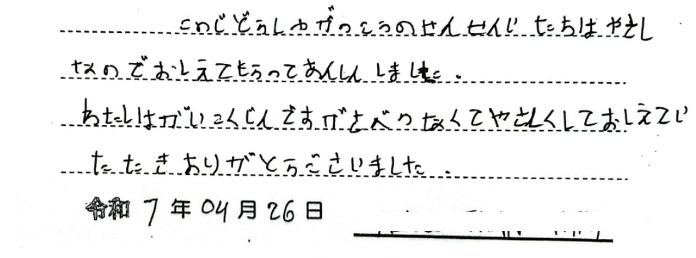 このじどうしゃがっこうのせんせんじたちはやさし
なのでおしえてもらってあんしんしました.
わたしはがいこくじんですがさべつなくてやさしくしておしえてい
ただきありがとうございました.
令和 7 年 04 月 26 日